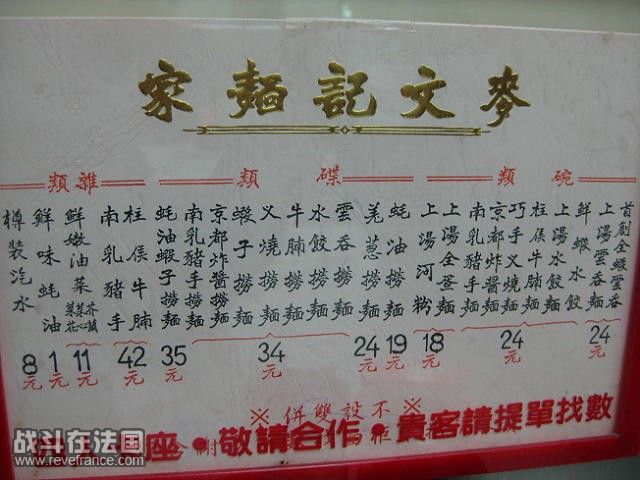 麥文記麵家
碗類
首創全蝦雲吞
上湯雲吞麵
24元
鮮蝦水餃
上湯水餃麵
柱侯牛腩麵
巧手叉燒麵
京都炸醬麵
南乳豬手麵
24元
上湯全蛋麵
上湯河粉
18元
碟類
蚝油撈麵
19元
羌葱撈麵
24元
雲吞撈麵
水餃撈麵
牛腩撈麵
叉燒撈麵
蝦子撈麵
京都炸醬撈麵
南乳豬手撈麵
34元
蚝油蝦子撈麵
35元
雜類
柱侯牛腩
南乳豬手
42元
鮮嫩油菜
芥蘭
菜心
11元
鮮味蚝油
1元
樽裝汽水
8元
※不設雙併※
座•敬請合作•貴客請提單找數
战斗在法国
www.revefrance.com